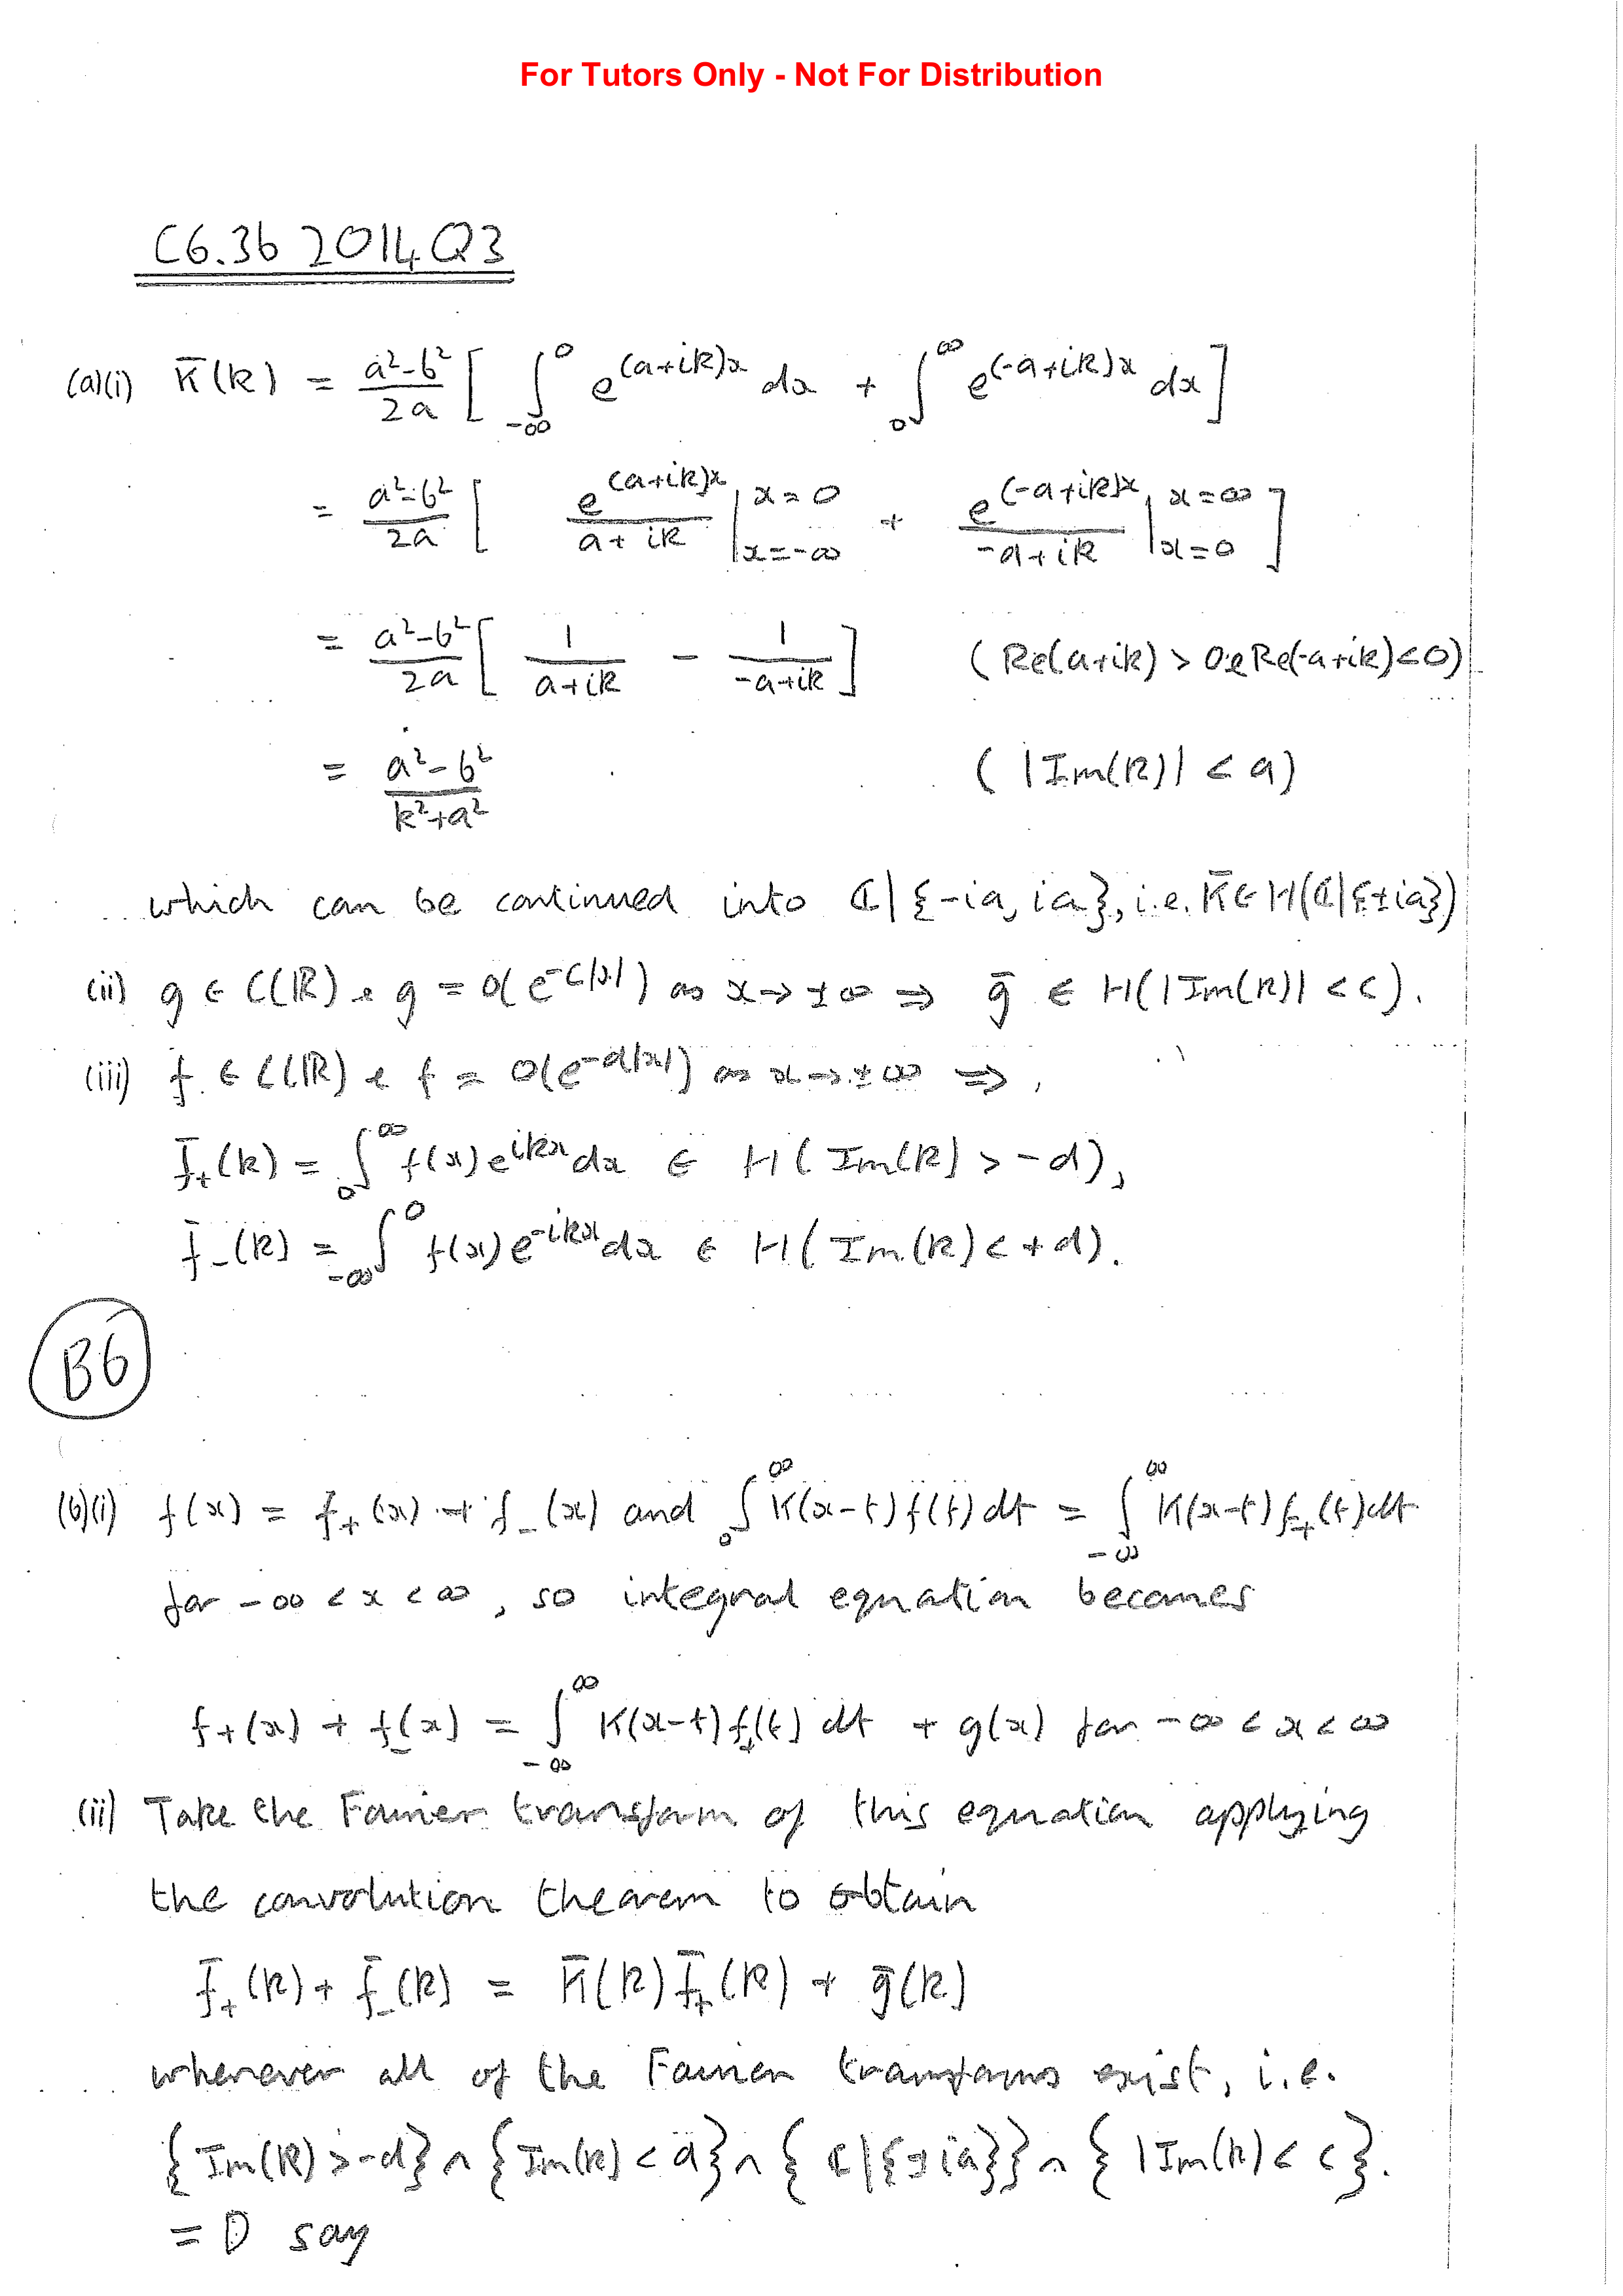 For Tutors Only - Not For Distribution
C6.3b 2014 Q3
(a)(i) K̄(k) = (a²-b²)/(2a) [ ∫_{-∞}^{0} e^{(a+ik)x} dx + ∫_{0}^{∞} e^{(-a+ik)x} dx ]
= (a²-b²)/(2a) [ e^{(a+ik)x}/(a+ik) |_{x=-∞}^{x=0} + e^{(-a+ik)x}/(-a+ik) |_{x=0}^{x=∞} ]
= (a²-b²)/(2a) [ 1/(a+ik) - 1/(-a+ik) ] (Re(a+ik) > 0 & Re(-a+ik) < 0)
= (a²-b²)/(k²+a²) (|Im(k)| < a)
which can be continued into ℂ\{-ia, ia}, i.e. K̄ ∈ H(ℂ\{±ia})
(ii) g ∈ C(ℝ) & g = O(e^{-c|x|}) as x → ±∞ ⇒ ḡ ∈ H(|Im(k)| < c).
(iii) f ∈ C(ℝ) & f = O(e^{-d|x|}) as x → ±∞ ⇒,
f̄₊(k) = ∫_{0}^{∞} f(x) e^{ikx} dx ∈ H(Im(k) > -d),
f̄₋(k) = ∫_{-∞}^{0} f(x) e^{-ikx} dx ∈ H(Im(k) < +d).
B6
(b)(i) f(x) = f₊(x) + f₋(x) and ∫_{0}^{∞} K(x-t) f(t) dt = ∫_{-∞}^{∞} K(x-t) f₊(t) dt
for -∞ < x < ∞, so integral equation becomes
f₊(x) + f₋(x) = ∫_{-∞}^{∞} K(x-t) f₊(t) dt + g(x) for -∞ < x < ∞
(ii) Take the Fourier transform of this equation applying
the convolution theorem to obtain
f̄₊(k) + f̄₋(k) = K̄(k) f̄₊(k) + ḡ(k)
wherever all of the Fourier transforms exist, i.e.
{Im(k) > -d} ∩ {Im(k) < d} ∩ {ℂ\{±ia}} ∩ {|Im(k) < c}.
= D say